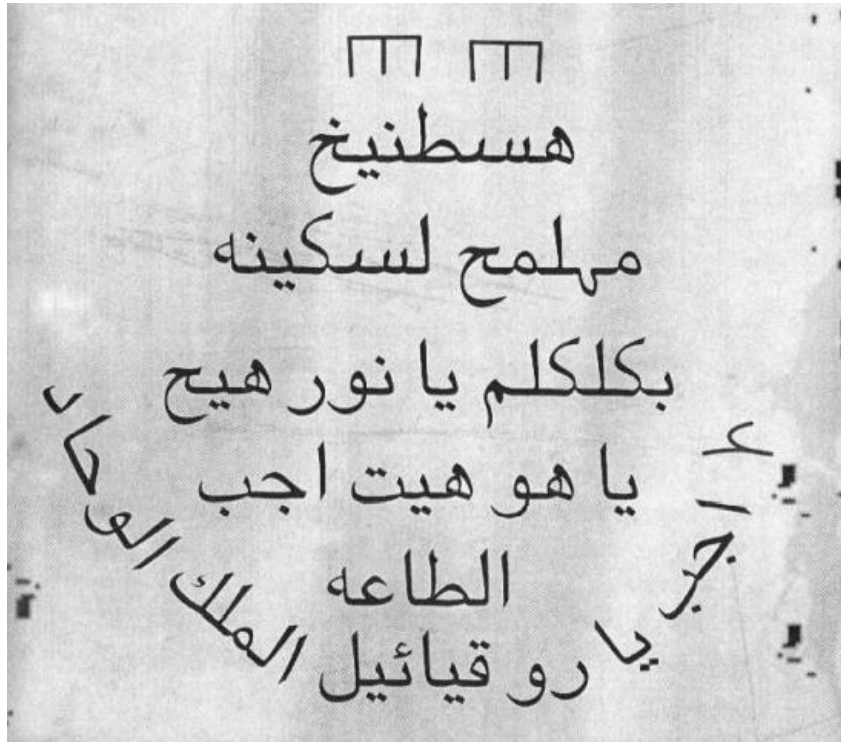 هسطنيخ
مهلمح لسكينه
بكلكلم يا نور هيح
يا هو هيت اجب
الطاعه
أجب يا رو قيائيل الملك